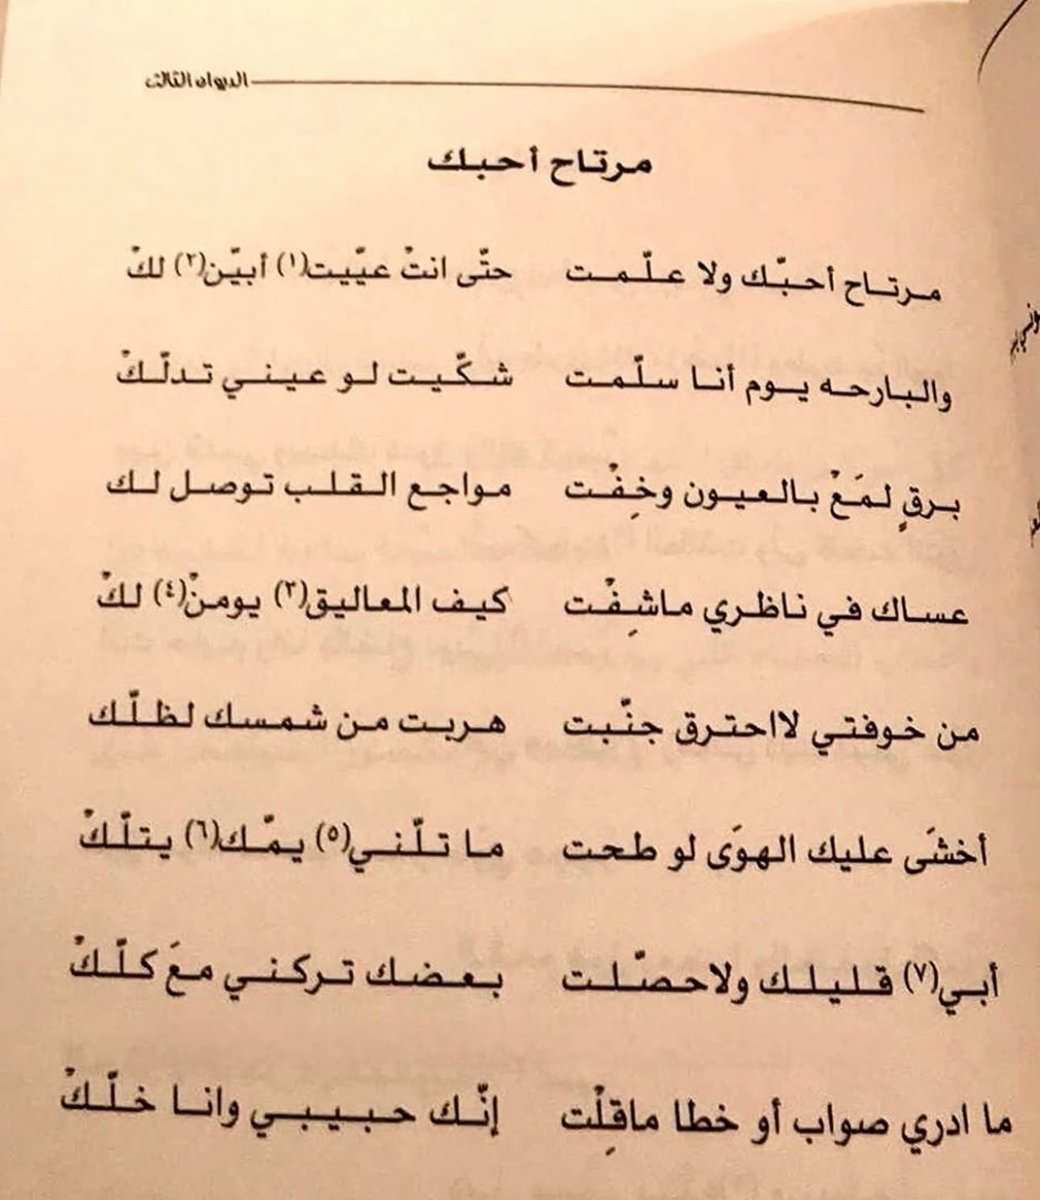 الديوان الثالث
مرتاح أحبك
مرتاح أحبّك ولا علّمت حتّى انتْ عيّيت(١) أبيّن(٢) لكْ
والبارحه يوم أنا سلّمت شكّيت لو عيني تدلّكْ
برقٍ لمَعْ بالعيون وخِفْت مواجع القلب توصل لك
عساك في ناظري ماشِفْت كيف المعاليق(٣) يومنْ(٤) لكْ
من خوفتي لااحترق جنّبت هربت من شمسك لظلّك
أخشَى عليك الهوَى لو طحت ما تلّني(٥) يمّك(٦) يتلّكْ
أبي(٧) قليلك ولاحصّلت بعضك تركني معَ كلّكْ
ما ادري صواب أو خطا ماقِلْت إنّك حبيبي وانا خلّكْ